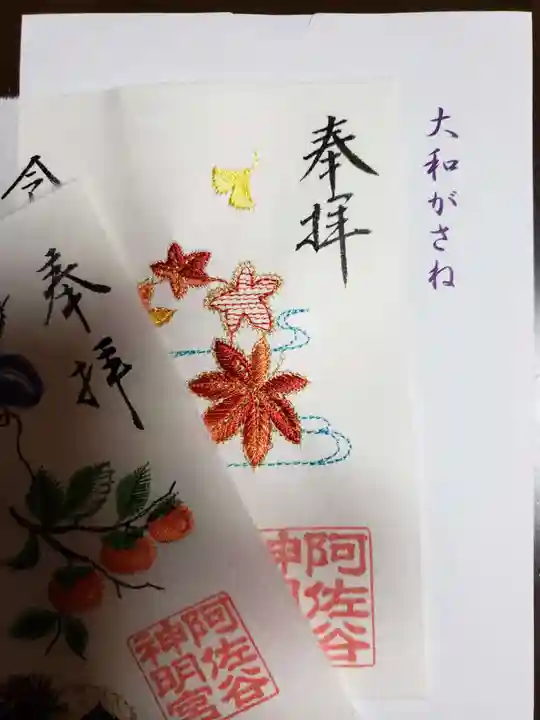 大和がさね
奉拝
阿佐谷
神明
令
奉拝
阿佐谷
神明宮